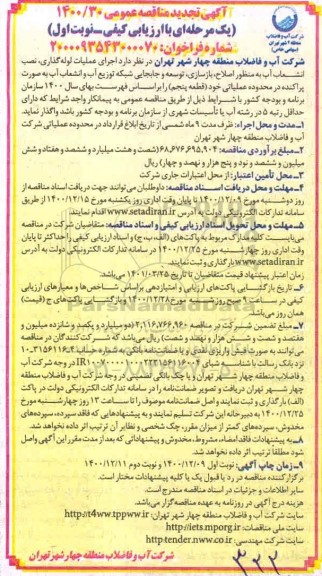 آگهی تجدید مناقصه عمومی ۱۴۰۰/۳۰
(یک مرحله‌ای با ارزیابی کیفی-نوبت اول)
شماره فراخوان: ۲۰۰۰۰۹۳۵۴۳۰۰۰۰۷۰
شرکت آب و فاضلاب
منطقه ۴ شهر تهران
(سهامی خاص)
شرکت آب و فاضلاب منطقه چهار شهر تهران در نظر دارد اجرای عملیات لوله‌گذاری، نصب
انشعاب آب به منظور اصلاح، بازسازی، توسعه و جابجایی شبکه توزیع آب و انشعاب آب به صورت
پراکنده در محدوده عملیاتی خود (قطعه پنجم) را بر اساس فهرست بهای سال ۱۴۰۰ سازمان
برنامه و بودجه کشور با شرایط ذیل از طریق مناقصه عمومی به پیمانکار واجد شرایط که دارای
حداقل رتبه ۵ در رشته آب یا تأسیسات شهری از سازمان برنامه و بودجه کشور باشد واگذار نماید.
۱-مدت و محل اجرا: ظرف مدت ۹ ماه شمسی از تاریخ ابلاغ قرارداد در محدوده عملیاتی شرکت
آب و فاضلاب منطقه چهار شهر تهران
۲-مبلغ برآوردی مناقصه: ۶۸,۶۷۶,۶۹۵,۹۰۴ (شصت و هشت میلیارد و ششصد و هفتاد و شش
میلیون و ششصد و نود و پنج هزار و نهصد و چهار) ریال
۳-محل تأمین اعتبار: از محل اعتبارات جاری شرکت
۴-مهلت و محل دریافت اسناد مناقصه: داوطلبان می‌توانند جهت دریافت اسناد مناقصه از
روز دوشنبه مورخ ۱۴۰۰/۱۲/۰۹ تا پایان وقت اداری روز یکشنبه مورخ ۱۴۰۰/۱۲/۱۵ از طریق
سامانه تدارکات الکترونیکی دولت به آدرس www.setadiran.ir اقدام نمایند.
۵-مهلت و محل تحویل اسناد ارزیابی کیفی و اسناد مناقصه: متقاضیان شرکت در مناقصه
می‌بایست کلیه مدارک مربوط به پاکت‌های (الف، ب، ج) و اسناد ارزیابی کیفی را حداکثر تا پایان
وقت اداری روز چهارشنبه مورخ ۱۴۰۰/۱۲/۲۵ در سامانه تدارکات الکترونیکی دولت به آدرس
www.setadiran.ir بارگذاری و ثبت نمایند.
زمان اعتبار پیشنهاد قیمت متقاضیان تا تاریخ ۱۴۰۱/۰۳/۲۵ می‌باشد.
۶-تاریخ بازگشایی پاکت‌های ارزیابی و امتیازدهی براساس شاخص‌ها و معیارهای ارزیابی
کیفی در ساعت ۹ صبح روز شنبه مورخ ۱۴۰۰/۱۲/۲۸ و بازگشایی پاکت‌های ج (قیمت)
همان روز می‌باشد.
۷-مبلغ تضمین شرکت در مناقصه ۲,۱۱۶,۷۶۶,۹۶۰ (دو میلیارد و یکصد و شانزده میلیون و
هفتصد و شصت و شش هزار و نهصد و شصت) ریال می‌باشد که شرکت‌کنندگان در مناقصه
نزد بانک رسالت با شناسه
و فاضلاب منطقه چهار شهر تهران و یا چک بانکی تضمینی در وجه شرکت آب و فاضلاب منطقه
چهار شهر تهران دریافت و تصویر ضمانت‌نامه را در سامانه تدارکات الکترونیکی دولت در پاکت
(الف) بارگذاری و ثبت نمایند و اصل ضمانت‌نامه موصوف را تا ساعت ۱۳ روز چهارشنبه مورخ
۱۴۰۰/۱۲/۲۵ به دبیرخانه این شرکت تسلیم نمایند و به پیشنهادهایی که فاقد سپرده، سپرده‌های
مخدوش، سپرده‌های کمتر از میزان مقرر، چک شخصی و نظایر آن ترتیب اثر داده نخواهد شد.
۸-به پیشنهادات فاقد امضاء، مشروط، مخدوش و پیشنهاداتی که بعد از مدت مقرر این آگهی واصل
شود مطلقاً ترتیب اثر داده نخواهد شد.
۹-زمان چاپ آگهی: نوبت اول ۱۴۰۰/۱۲/۰۹ و نوبت دوم ۱۴۰۰/۱۲/۱۱
برگزارکننده مناقصه در رد یا قبول یک یا کلیه پیشنهادات مختار است.
سایر اطلاعات و جزئیات در اسناد مناقصه مندرج است.
هزینه درج آگهی در روزنامه به عهده مناقصه‌گزار می‌باشد.
سایت شرکت آب و فاضلاب منطقه چهار شهر تهران: http://t4ww.tppww.ir
سایت ملی مناقصات: http://iets.mporg.ir
سایت شرکت مهندسی: http:tender.nww.co.ir
شرکت آب و فاضلاب منطقه چهار شهر تهران
۳۲۲
ParsNamadData